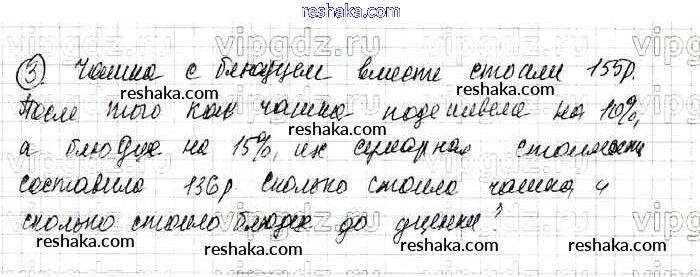 reshaka.com
③ Чашка с блюдцем вместе стоили 155р.
После того как чашка подешевела на 10%,
а блюдце на 15%, их суммарная стоимость
составила 136р. Сколько стоила чашка и
сколько стоило блюдце до уценки?
reshaka.com
reshaka.com
reshaka.com
reshaka.com
reshaka.com
reshaka.com
reshaka.com
reshaka.com
reshaka.com
vipgdz.ru
vipgdz.ru
vipgdz.ru